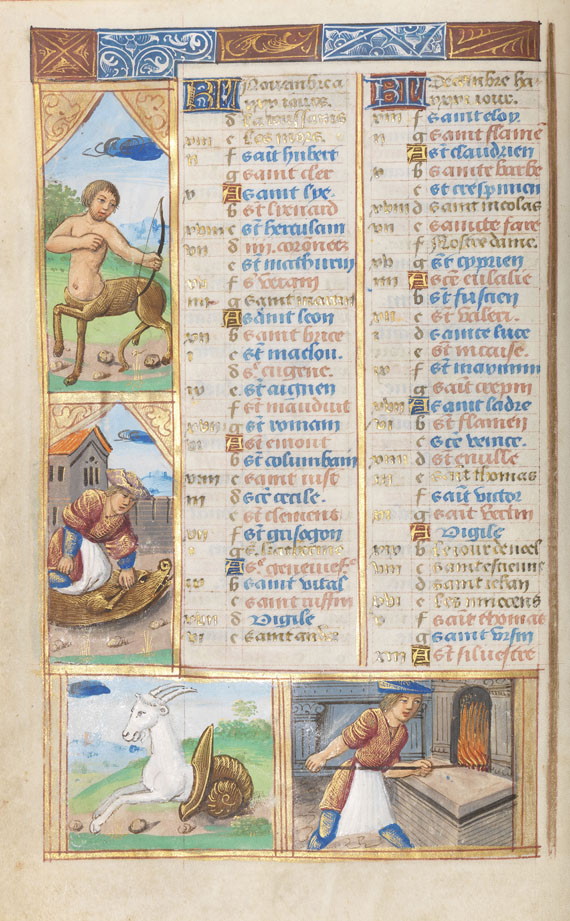 KL Novembre a
xxx iours.
d La toussains
xiii e Les mors.
ii f saīt hubert
g saint cler
x A saint lye.
b st lienard
xviii c st herculain
vii d iiii. coronez
e st mathurin
xv f s. verain
iiii g saint martin
A saint leon
xii b saint brice
i c st maclou.
d s. eugene.
ix e st aignen
f st mauduit
xvii g st romain
vi A st emont
b st columbain
xiiii c saint iust
iii d sce cecile.
e st clemens
xi f st grisogon
g s. katherine
A se geneuiefe
b saint vital
c saint ruffin
d Vigile
vi e saint andre
KL Decembre ha
xxxi iour.
xiii f saint eloy
ii g saint flamē
A st claudien
x b sainte barbe
c st crespinien
xviii d saint nicolas
vii e saincte fare
f Nostre dame.
xv g st cyprien
iiii A sce eulalie
b st fuscien
xii c st valeri.
i d sainte luce
e st nicaise.
ix f st maximin
g sait crepin
xvii A saint ladre
vi b st flamen
c sce venice.
xiiii d st eville
iii e saint thomas
f saīt victor
xi g sait
A Vigile
b Le iour de noel
c saint estienne
d saint iehan
e Les innocens
f saīt thomas
g saint ursin
xiii A st silvestre